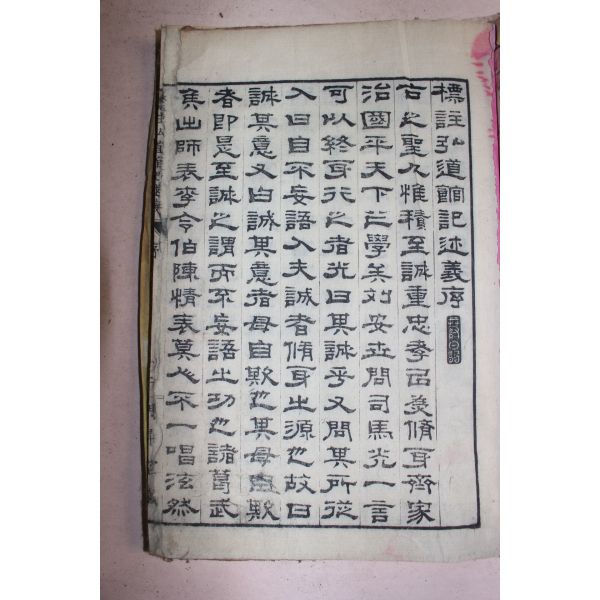 標註弘道館記述義序
古之聖人惟積至誠重忠孝以爲脩身齊家
治國平天下之學矣劉安世問司馬光一言
可以終身行之者光曰其誠乎又問其所從
入曰自不妄語入夫誠者脩身之源也故曰
誠其意又曰誠其意者毋自欺也其毋自欺
者即是至誠之謂而不妄語之功也諸葛武
侯出師表李令伯陳情表莫心不一唱泫然